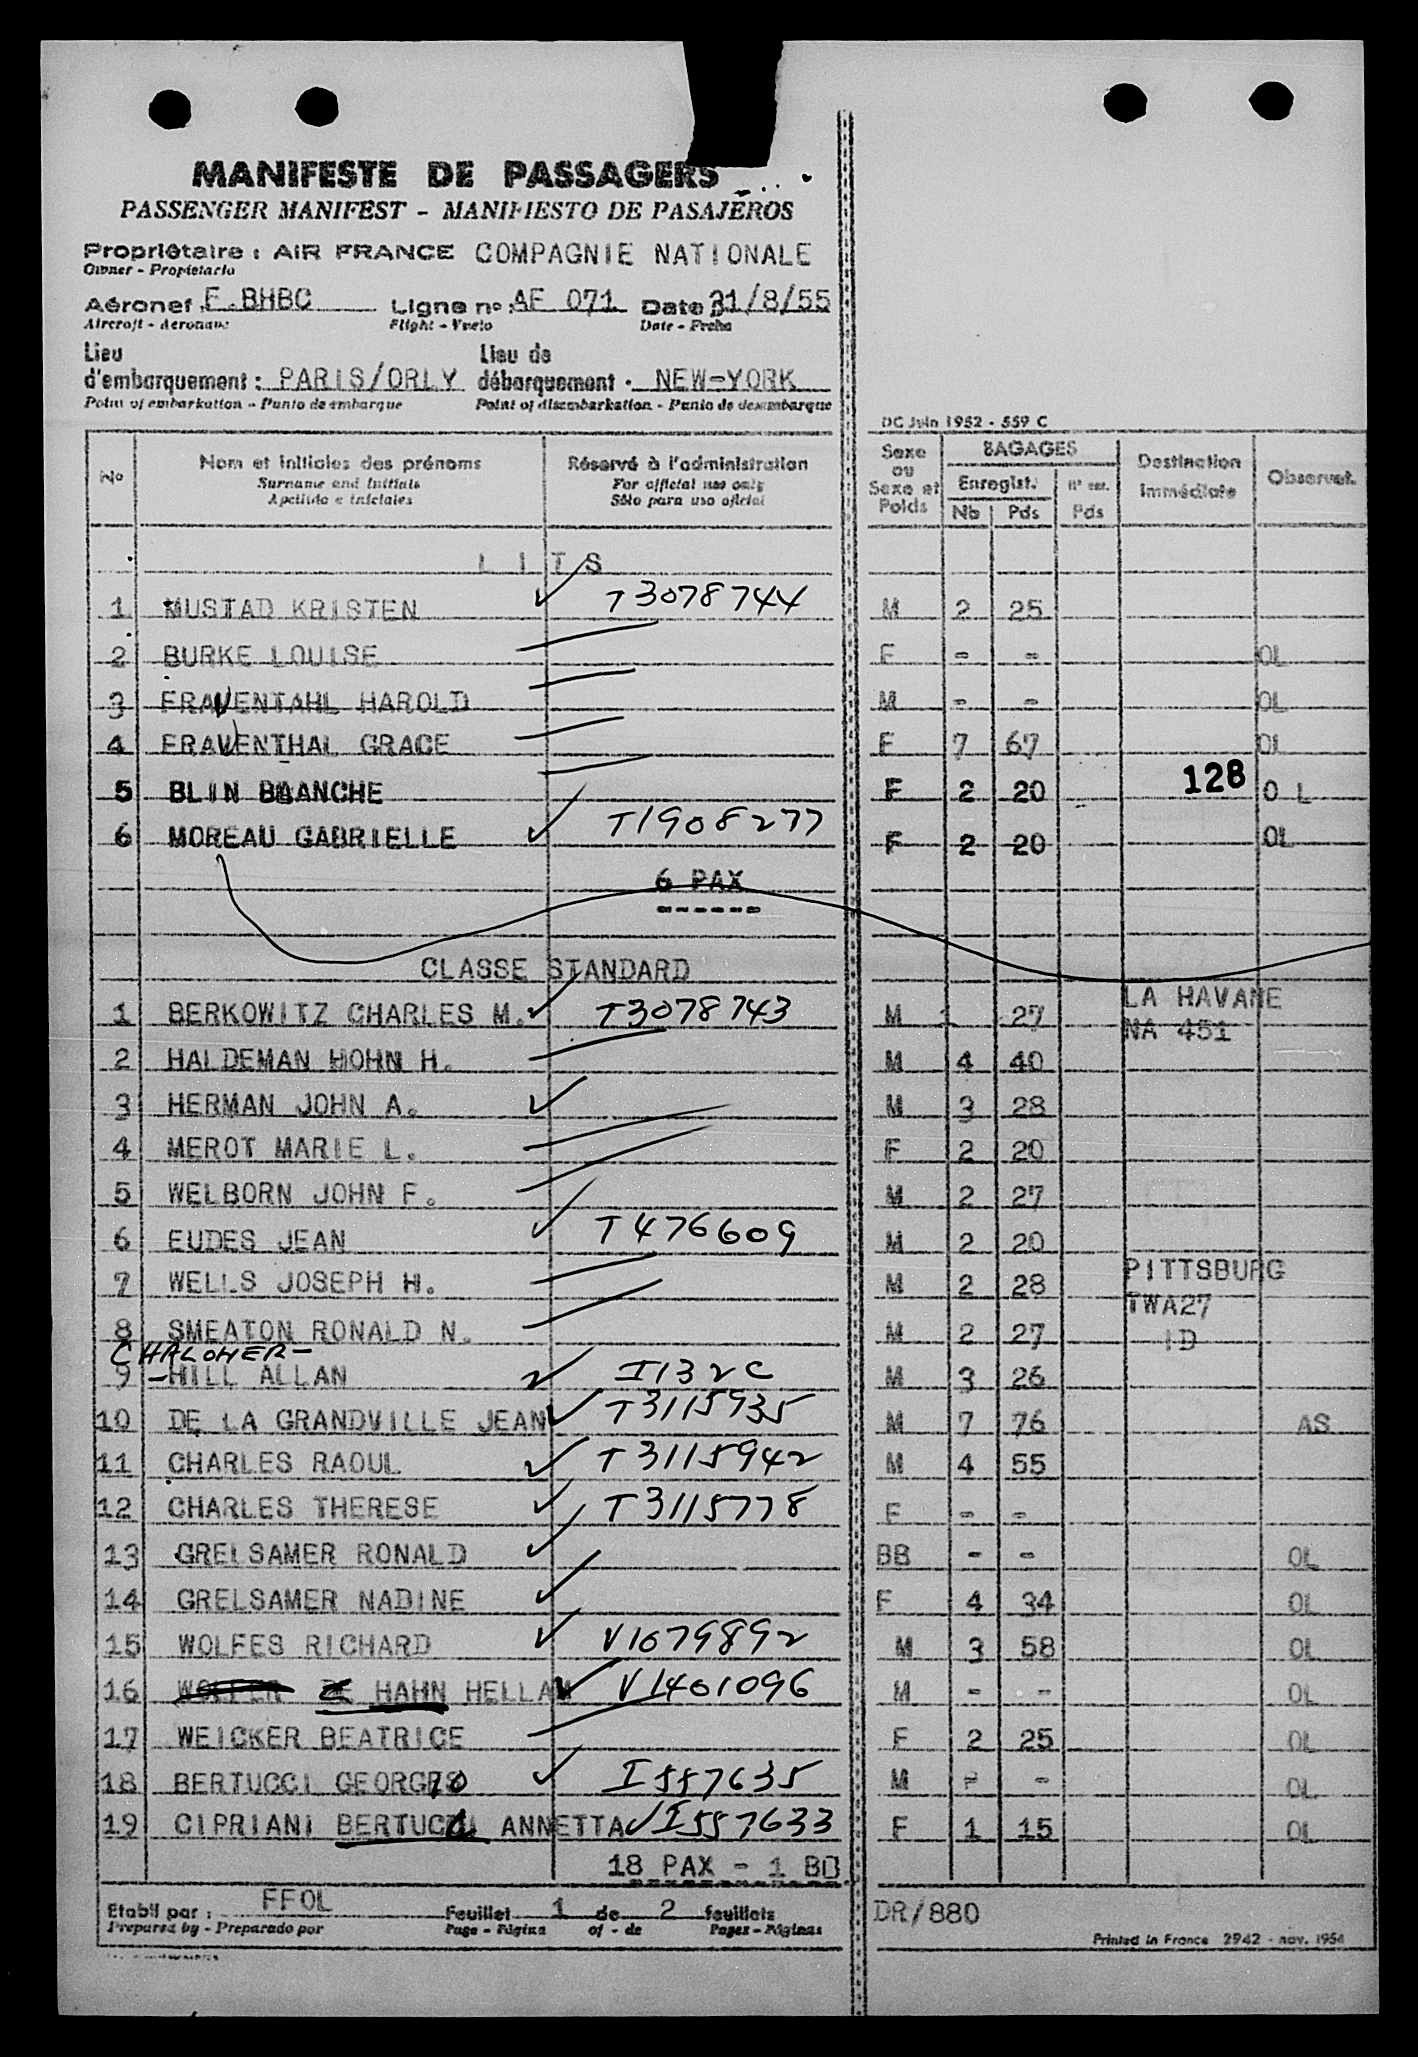 MANIFESTE DE PASSAGERS
PASSENGER MANIFEST - MANIFIESTO DE PASAJEROS
Propriétaire : AIR FRANCE COMPAGNIE NATIONALE
Owner - Propietario
Aéronef F.BHBC Ligne nº : AF 071 Date : 31/8/55
Aircraft - Aeronave Flight - Vuelo Date - Fecha
Lieu d'embarquement : PARIS/ORLY Lieu de débarquement : NEW-YORK
Point of embarkation - Punto de embarque Point of disembarkation - Punto de desembarque
DC Juin 1952 - 559 C
No Nom et initiales des prénoms Réservé à l'administration Sexe ou Sexe et Poids BAGAGES Destination immédiate Observat.
Surname and initials For official use only Enregist. Nº enr.
Apellido e iniciales Sólo para uso oficial Nb Pds Pds
L I T S
1 MUSTAD KRISTEN T3078744 M 2 25
2 BURKE LOUISE F - - OL
3 FRAVENTAHL HAROLD M - - OL
4 FRAVENTHAL GRACE F 7 67 OL
5 BLIN BLANCHE F 2 20 128 O L
6 MOREAU GABRIELLE T1908277 F 2 20 OL
6 PAX
------
CLASSE STANDARD
1 BERKOWITZ CHARLES M. T3078743 M 27 LA HAVANE
NA 451
2 HALDEMAN HOHN H. M 4 40
3 HERMAN JOHN A. M 3 28
4 MEROT MARIE L. F 2 20
5 WELBORN JOHN F. M 2 27
6 EUDES JEAN T476609 M 2 20
7 WELLS JOSEPH H. M 2 28 PITTSBURG
TWA27
8 SMEATON RONALD N. M 2 27 ID
CHALONER-
9 -HILL ALLAN I132C M 3 26
10 DE LA GRANDVILLE JEAN T3115935 M 7 76 AS
11 CHARLES RAOUL T3115942 M 4 55
12 CHARLES THERESE T3115778 F - -
13 GRELSAMER RONALD BB - - OL
14 GRELSAMER NADINE F 4 34 OL
15 WOLFES RICHARD V1679892 M 3 58 OL
16 HAHN HELLAM V1401096 M - - OL
17 WEICKER BEATRICE F 2 25 OL
18 BERTUCCI GEORGIO I557635 M - - OL
19 CIPRIANI BERTUCCI ANNETTA I557633 F 1 15 OL
18 PAX - 1 BB
Etabli par : FFOL Feuillet 1 de 2 feuillets DR/880
Prepared by - Preparado por Page - Página of - de Pages - Páginas
Printed in France 2942 - nov. 1954